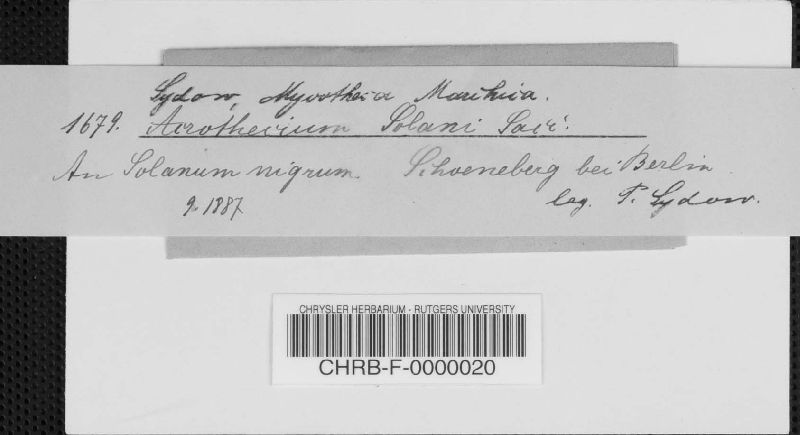 Sydow, Mycotheca Marchica.
1679. Acrothecium Solani Sacc.
An Solanum nigrum. Schoeneberg bei Berlin
9. 1887 leg. P. Sydow.
CHRYSLER HERBARIUM - RUTGERS UNIVERSITY
CHRB-F-0000020